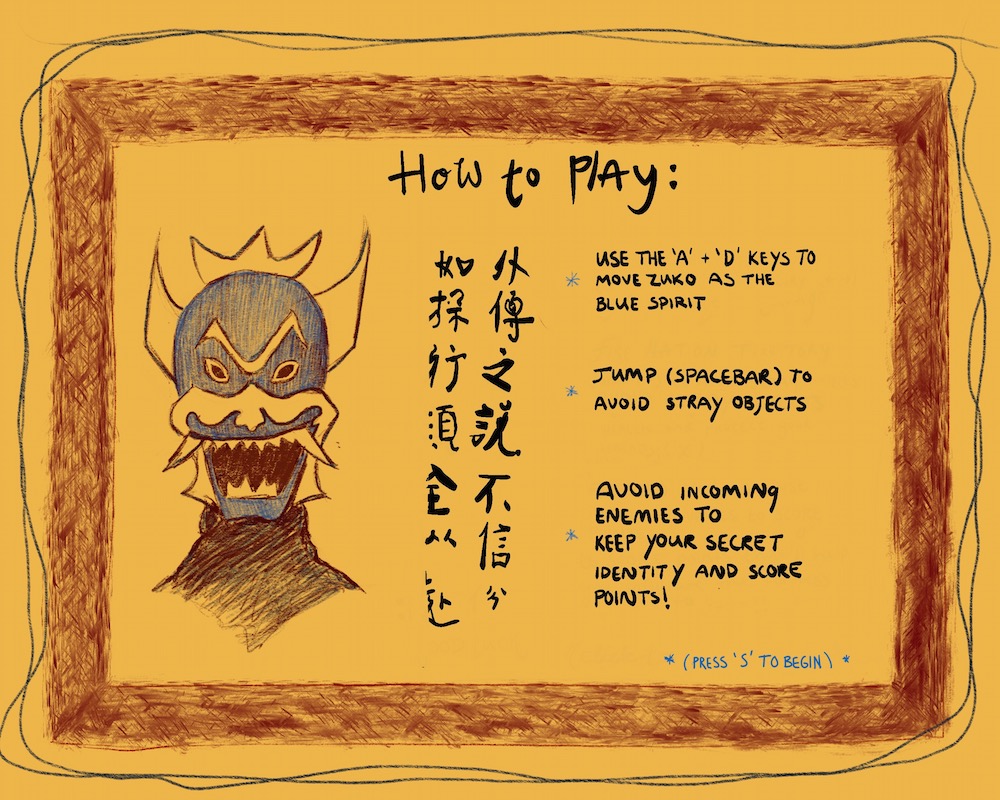 How to Play:
外傳之説不信兮
如探行須全从
USE THE 'A' + 'D' KEYS TO
MOVE ZUKO AS THE
BLUE SPIRIT
JUMP (SPACEBAR) TO
AVOID STRAY OBJECTS
AVOID INCOMING
ENEMIES TO
KEEP YOUR SECRET
IDENTITY AND SCORE
POINTS!
* (PRESS 'S' TO BEGIN) *